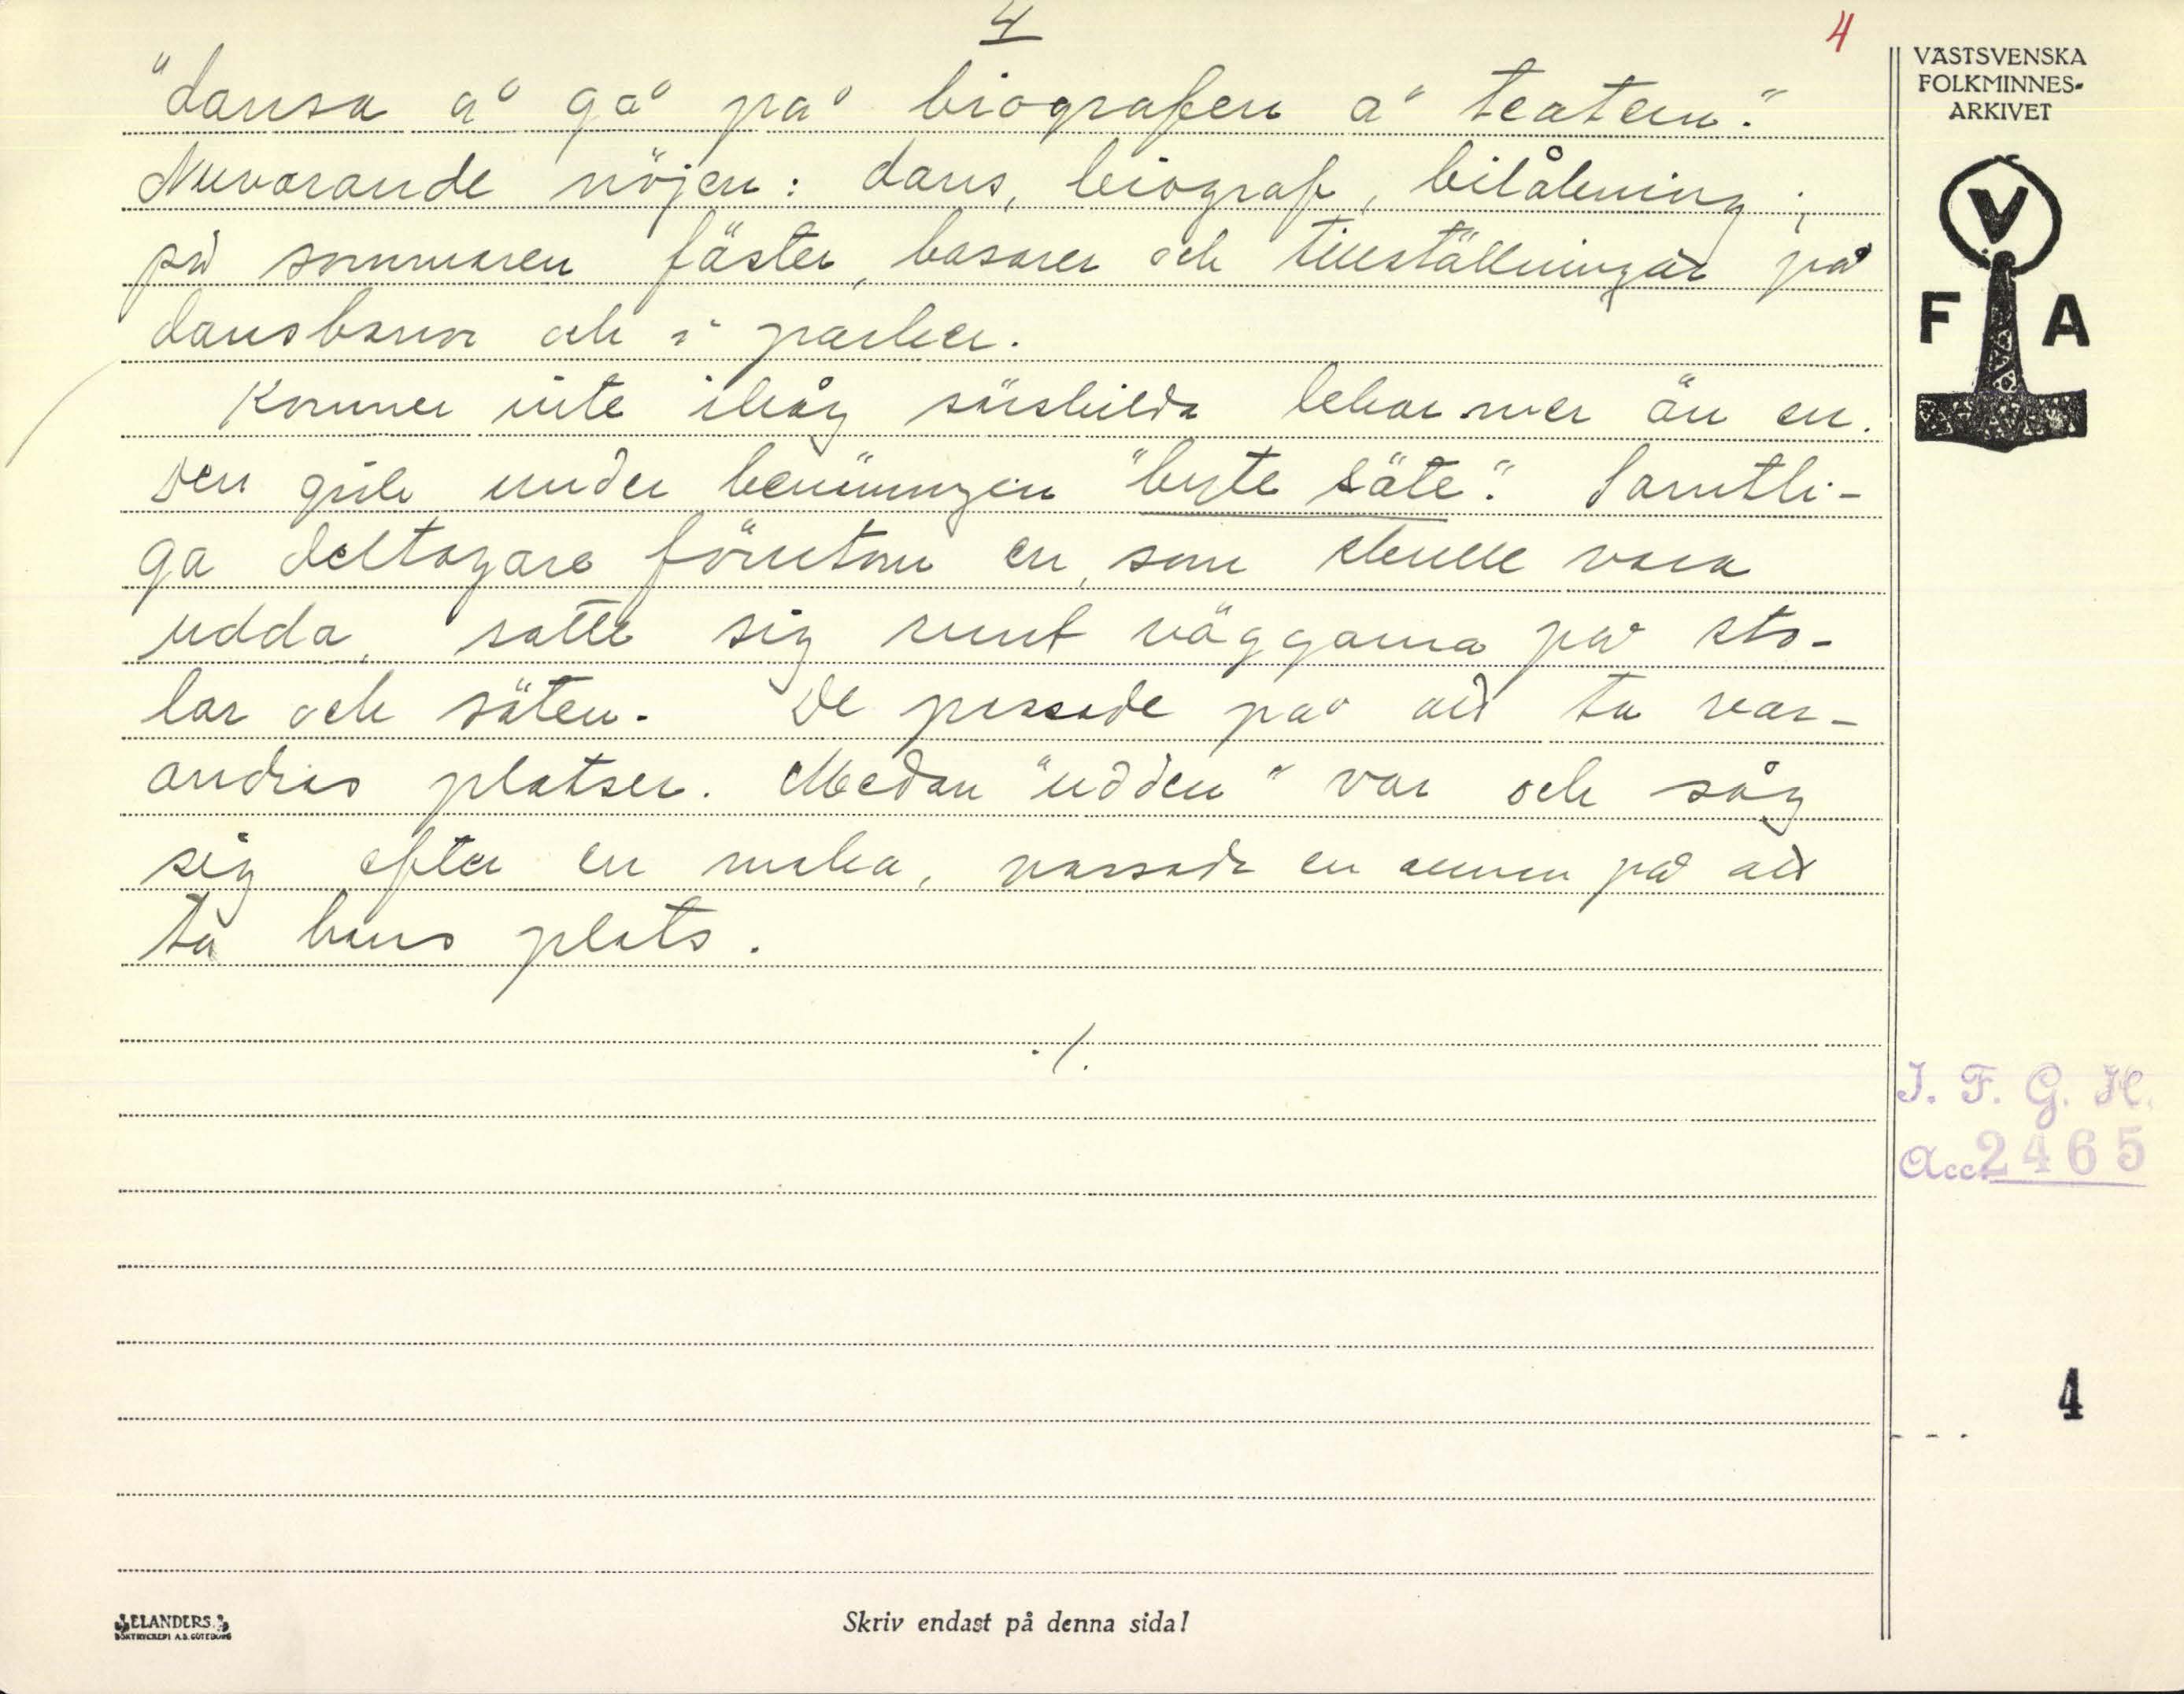 4
4
"dansa å gå på biografen å teatern."
Nuvarande nöjen: dans, biograf, bilåkning;
på sommaren fäster, basarer och tillställningar på
dansbanor och i parker.
Kommer inte ihåg särskilda lekar mer än en.
Den gick under benämningen "byte säte". Samtli-
ga deltagare förutom en, som skulle vara
udda, satte sig runt väggarna på sto-
lar och säten. De passade på att ta var-
andras platser. Medan "udden" var och såg
sig efter en maka, passade en annan på att
ta hans plats.
./.
VÄSTSVENSKA
FOLKMINNES-
ARKIVET
V
F A
I. F. G. H.
Acc. 2465
4
ELANDERS
BOKTRYCKERI A.B. GÖTEBORG
Skriv endast på denna sida!